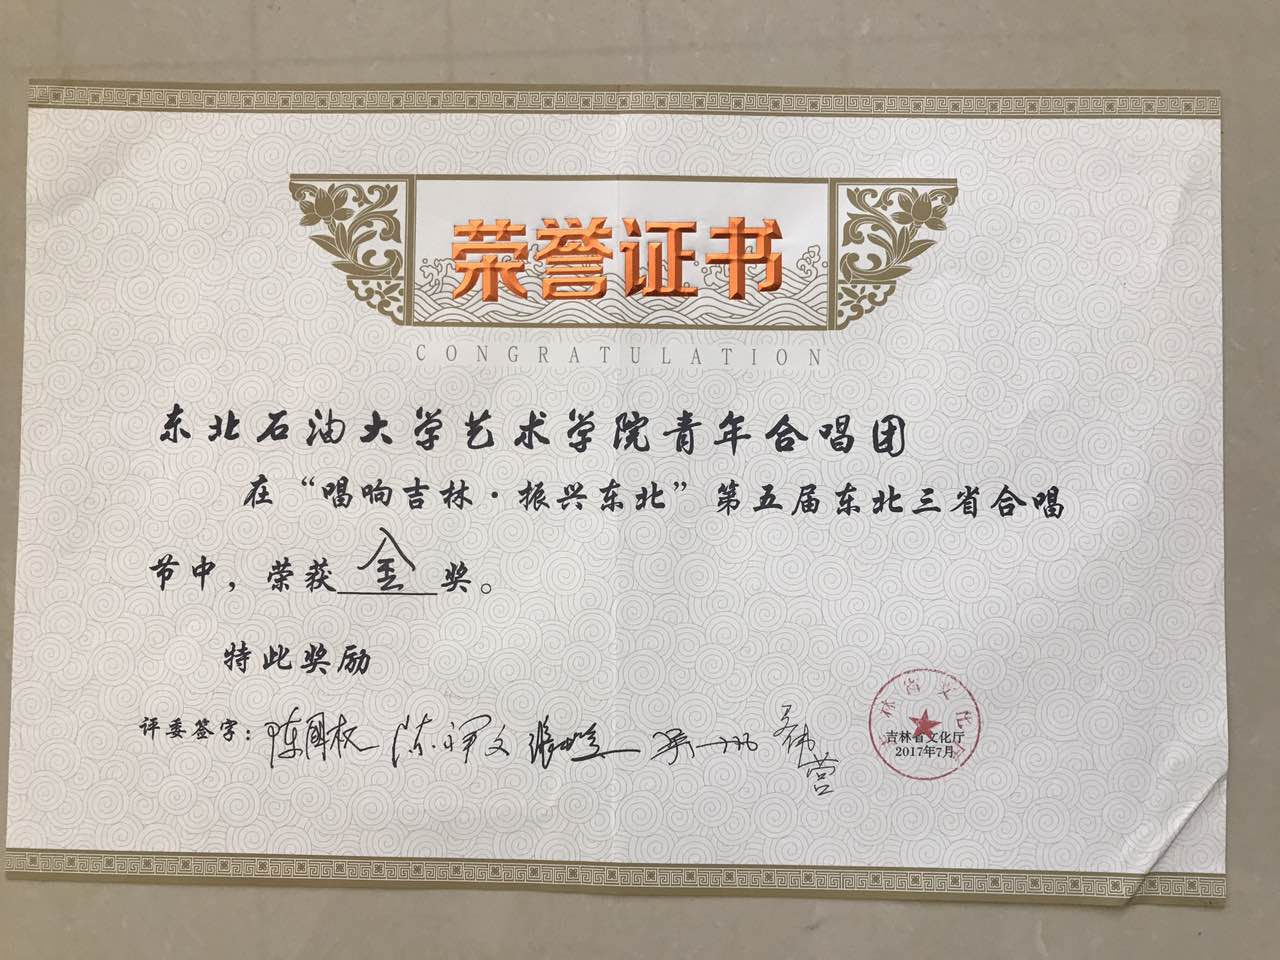 荣誉证书
CONGRATULATION
东北石油大学艺术学院青年合唱团
在“唱响吉林·振兴东北”第五届东北三省合唱
节中，荣获金奖。
特此奖励
评委签字：
吉林省文化厅
吉林省文化厅
2017年7月